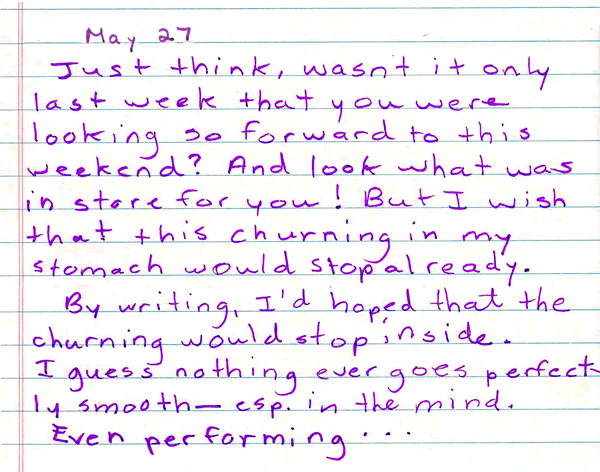 May 27
Just think, wasn't it only
last week that you were
looking so forward to this
weekend? And look what was
in store for you! But I wish
that this churning in my
stomach would stop already.
By writing, I'd hoped that the
churning would stop inside.
I guess nothing ever goes perfect-
ly smooth— esp. in the mind.
Even performing...